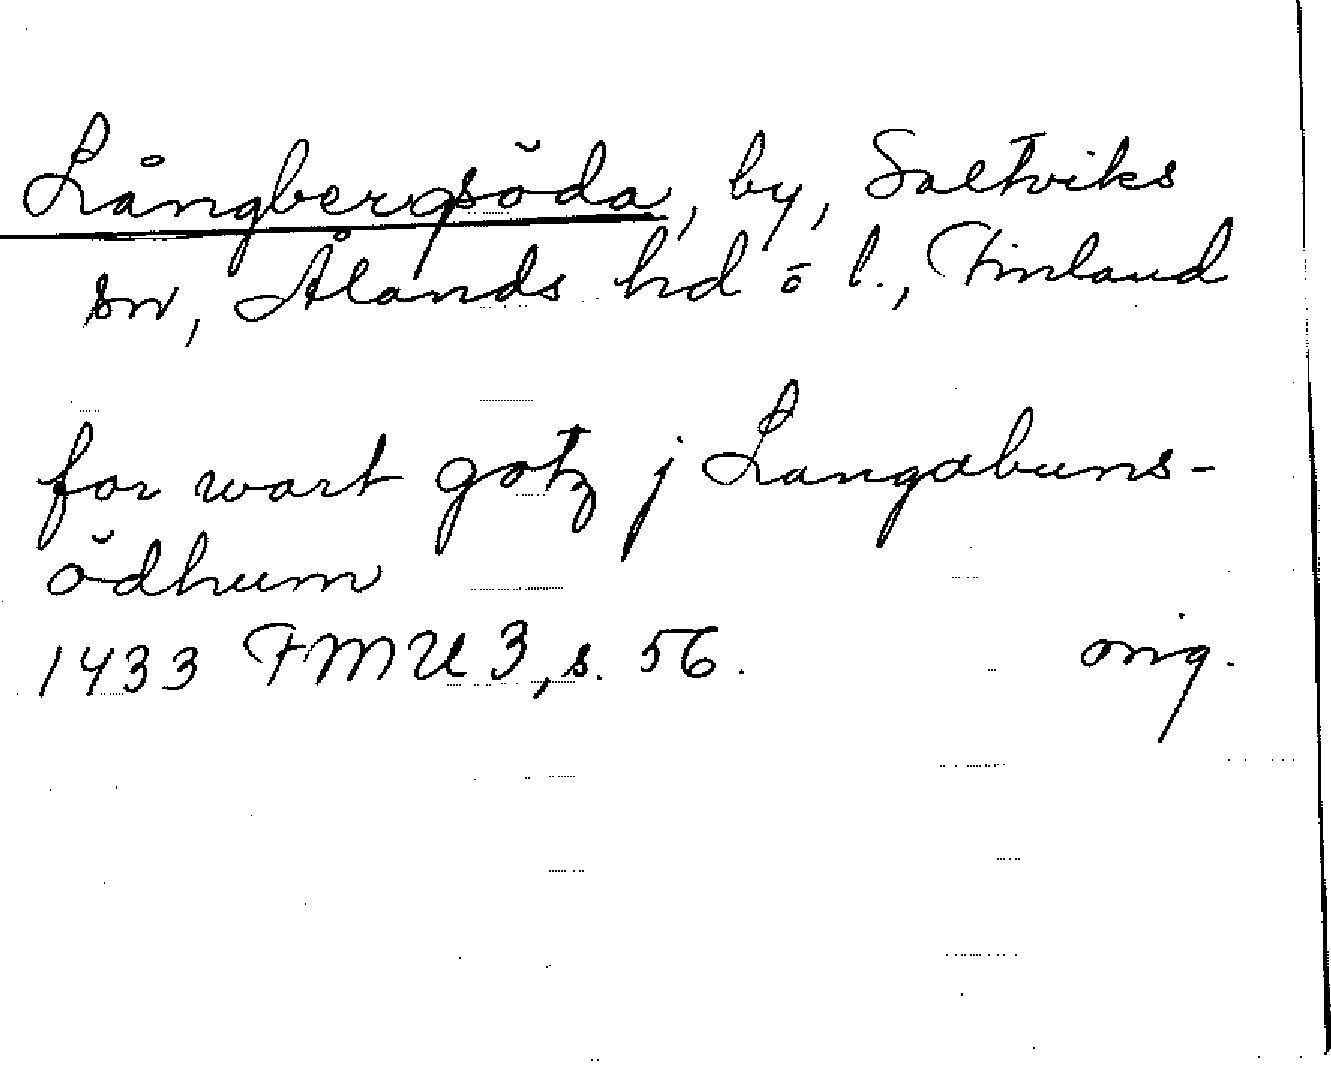 Långbergsöda, by, Saltviks
sn, Ålands hd o l., Finland
for wart gotz j Langabuns-
ödhum
1433 FMU 3, s. 56. orig.